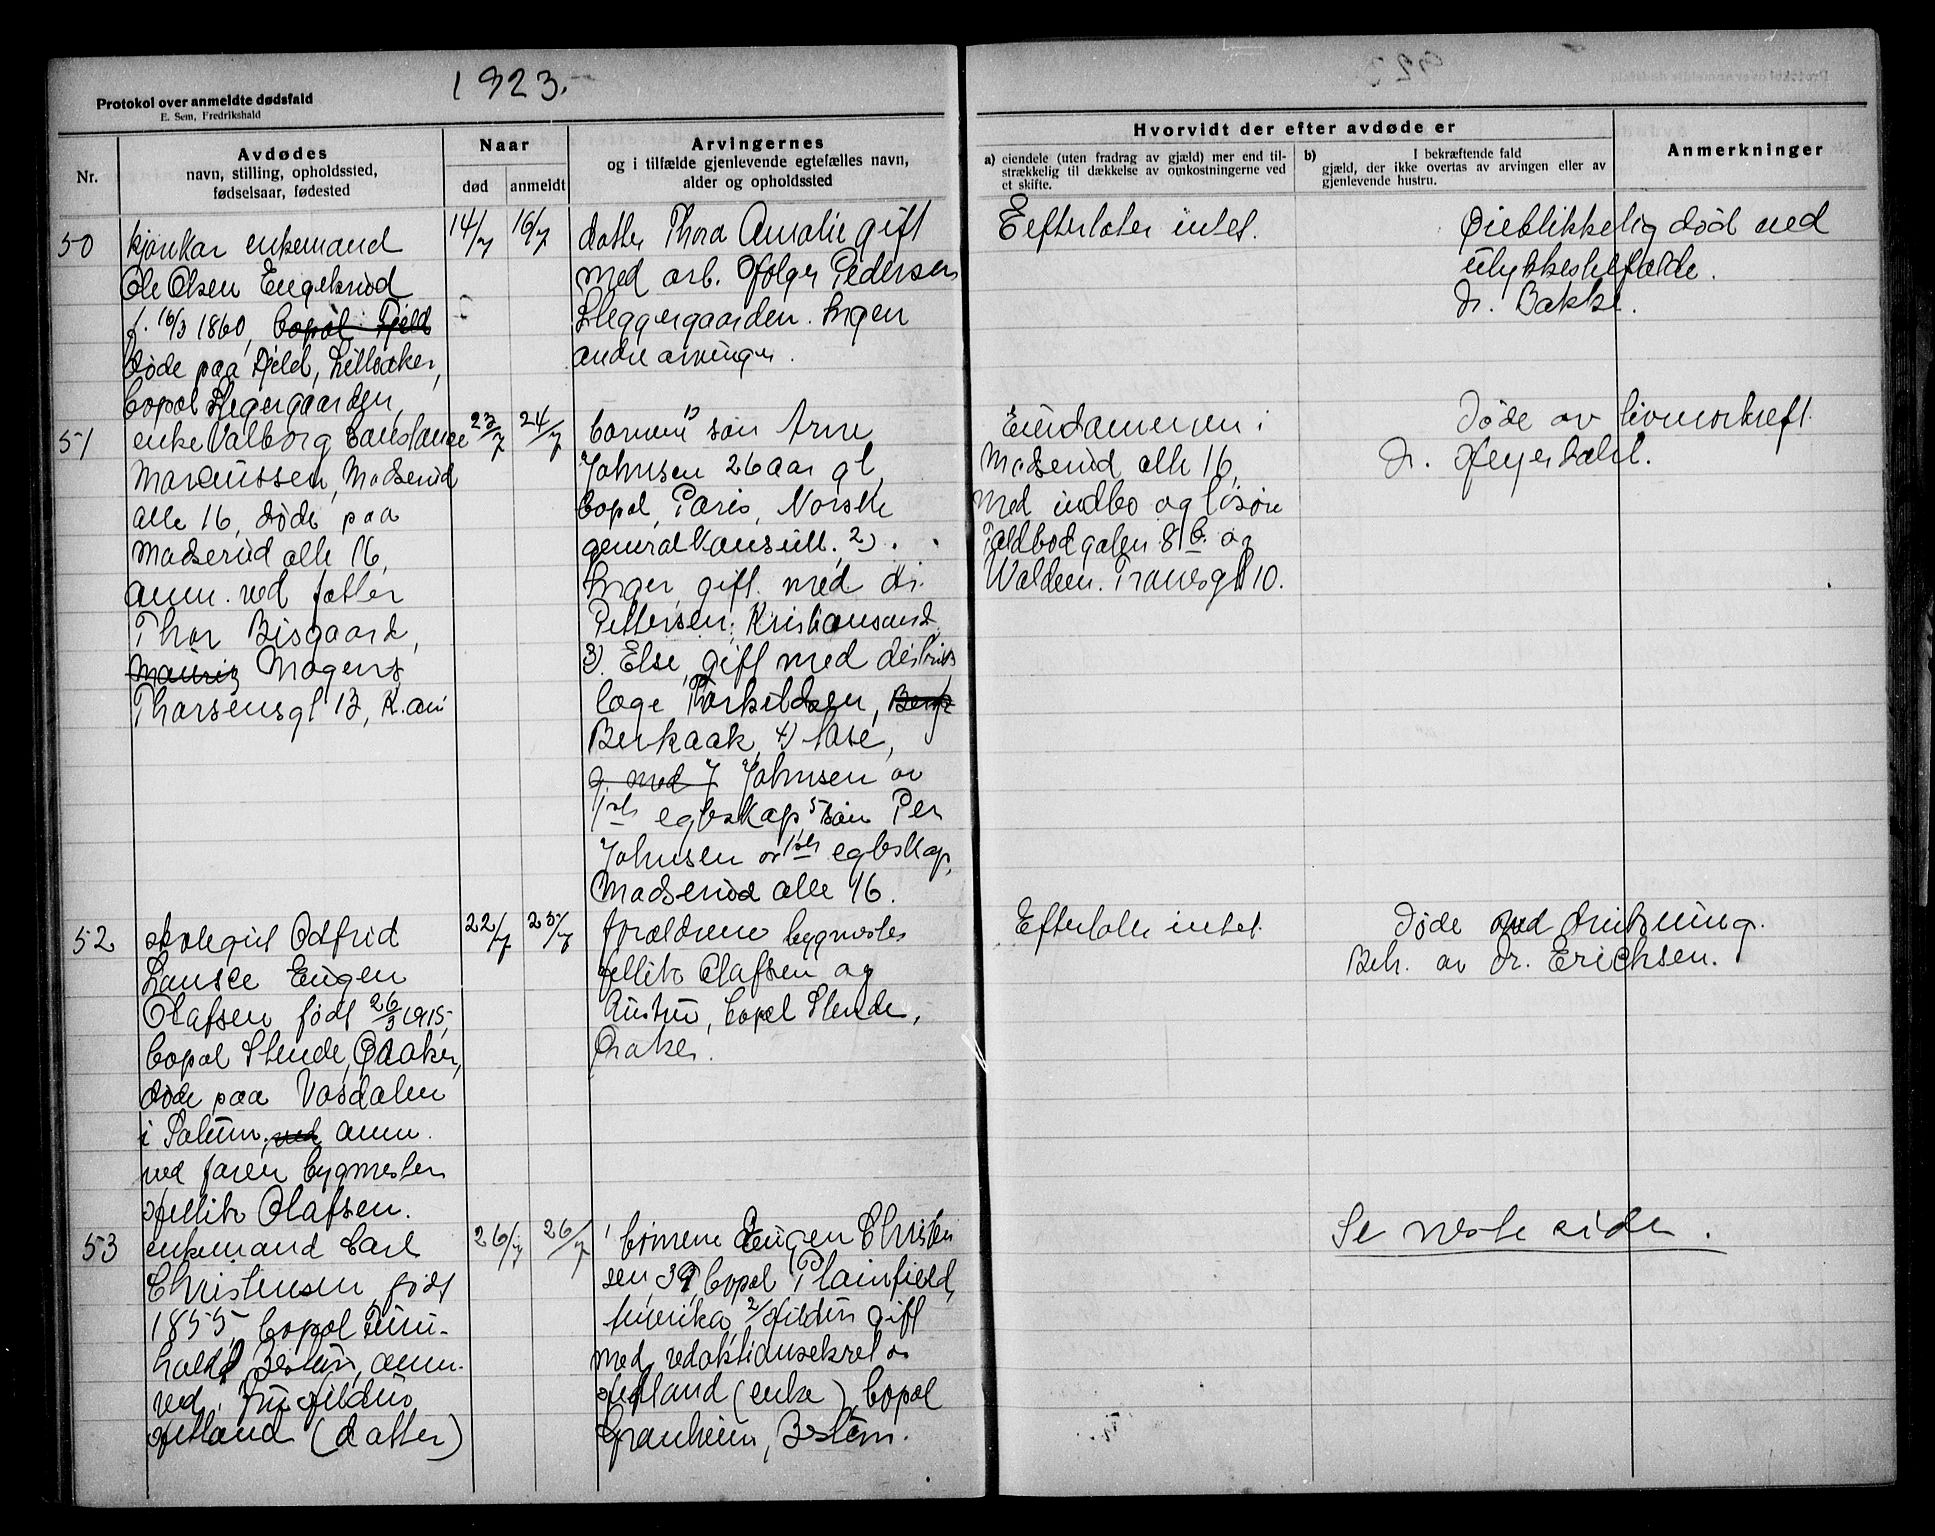 1923.
Protokol over anmeldte dødsfald
E. Sem, Fredrikshald
Nr.
Avdødes
navn, stilling, opholdssted,
fødselsaar, fødested
Naar
død
anmeldt
Arvingernes
og i tilfælde gjenlevende egtefælles navn,
alder og opholdssted
Hvorvidt der efter avdøde er
a) eiendele (uten fradrag av gjæld) mer end til-
strækkelig til dækkelse av omkostningerne ved
et skifte.
b) I bekræftende fald
gjæld, der ikke overtas av arvingen eller av
gjenlevende hustru.
Anmerkninger
50
kjørekar enkemand
Ole Olsen Engebriod
f. 16/3 1860, bopæl Fjeld
døde paa Fjeld, Lilleaker,
bopæl Sleggergaarden
14/7
16/7
datter Thora Amalie gift
med arb. Holger Pedersen
Sleggergaarden. Ingen
andre arvinger.
Efterlater intet.
Øieblikkelig død ved
ulykkestilfælde.
Dr. Bakke.
51
enke Valborg Constance
Marcussen, Madserud
alle 16, døde paa
Madserud alle 16,
anm. ved fatter
Thor Bisgaard,
Mogens
Thorsensgt 13, K.ani
23/7
24/7
barnene 1) søn Arne
Johnsen 26 aar gl,
bopæl, Paris, Norske
generalkonsult. 2)
Inger, gift med dr.
Pettersen, Kristiansand,
3) Else, gift med distrikts
læge Thorkildsen,
Berkaak, 4) Aase,
g. med J Johnsen av
1ste egteskap 5) søn Per
Johnsen av 1ste egteskap,
Madserud alle 16.
Eiendommen i
Madserud alle 16,
med indbo og løsøre
Toldbodgaten 8 b. og
Waldem. Tranesgt 10.
Døde av livmorkreft.
Dr. Heyerdahl.
52
skolegut Odfrid
Eugen
Olafsen født 26/3 1915,
bopæl Slende, Oraker,
døde paa Vasdalen
i Solum, ved anm.
ved faren bygmester
Olafsen.
22/7
25/7
forældrene bygmester
Olafsen og
hustru, bopæl Slende,
Oraker.
Efterlater intet.
Døde ved drukning.
Beh. av dr. Erichsen.
53
enkemand Carl
Christensen, født
1855, bopæl
Bestum, anm.
ved fru Hildur
Hetland (datter)
26/7
26/7
1 børnene Eugen Christen
sen, 39, bopæl Plainfield,
Amerika, 2/ Hildur gift
med redaktionsekretær
Hetland (enke), bopæl
Granheim, Bestum.
Se neste side.